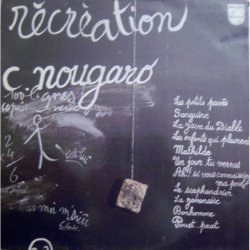 récréation
PHILIPS
C nougaro
100 lignes
Les petits pavés
Sanguine
La Java du Diable
Les enfants qui pleurent
Mathilde
Un jour tu verras
Ah! si vous connaissiez
ma poule
Le scaphandrier
La gavenaise
Bonhomme
Pouet-pouet
2
+4
6